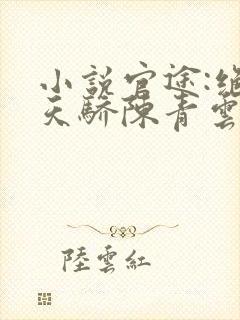 小説官途:絕
天驕陳青雲
陸雲紅